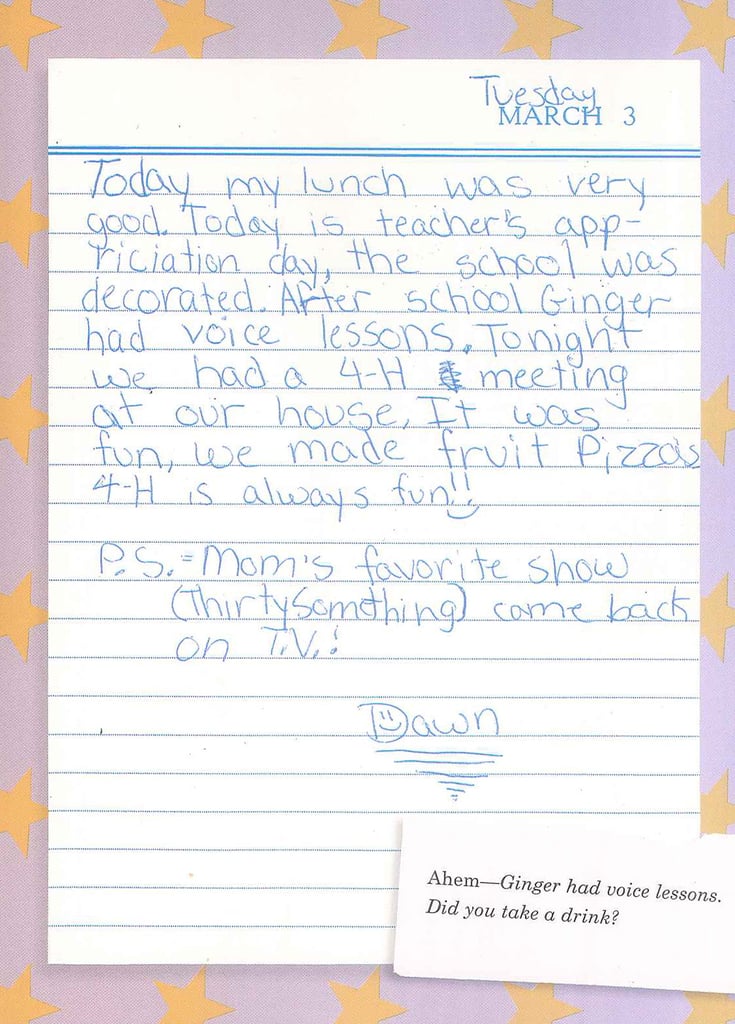 Tuesday
MARCH 3
Today my lunch was very
good. Today is teacher's app-
riciation day, the school was
decorated. After school Ginger
had voice lessons. Tonight
we had a 4-H meeting
at our house. It was
fun, we made fruit Pizzas
4-H is always fun!!
P.S.=Mom's favorite show
(ThirtySomething) came back
on T.V.!
Dawn
Ahem—Ginger had voice lessons.
Did you take a drink?